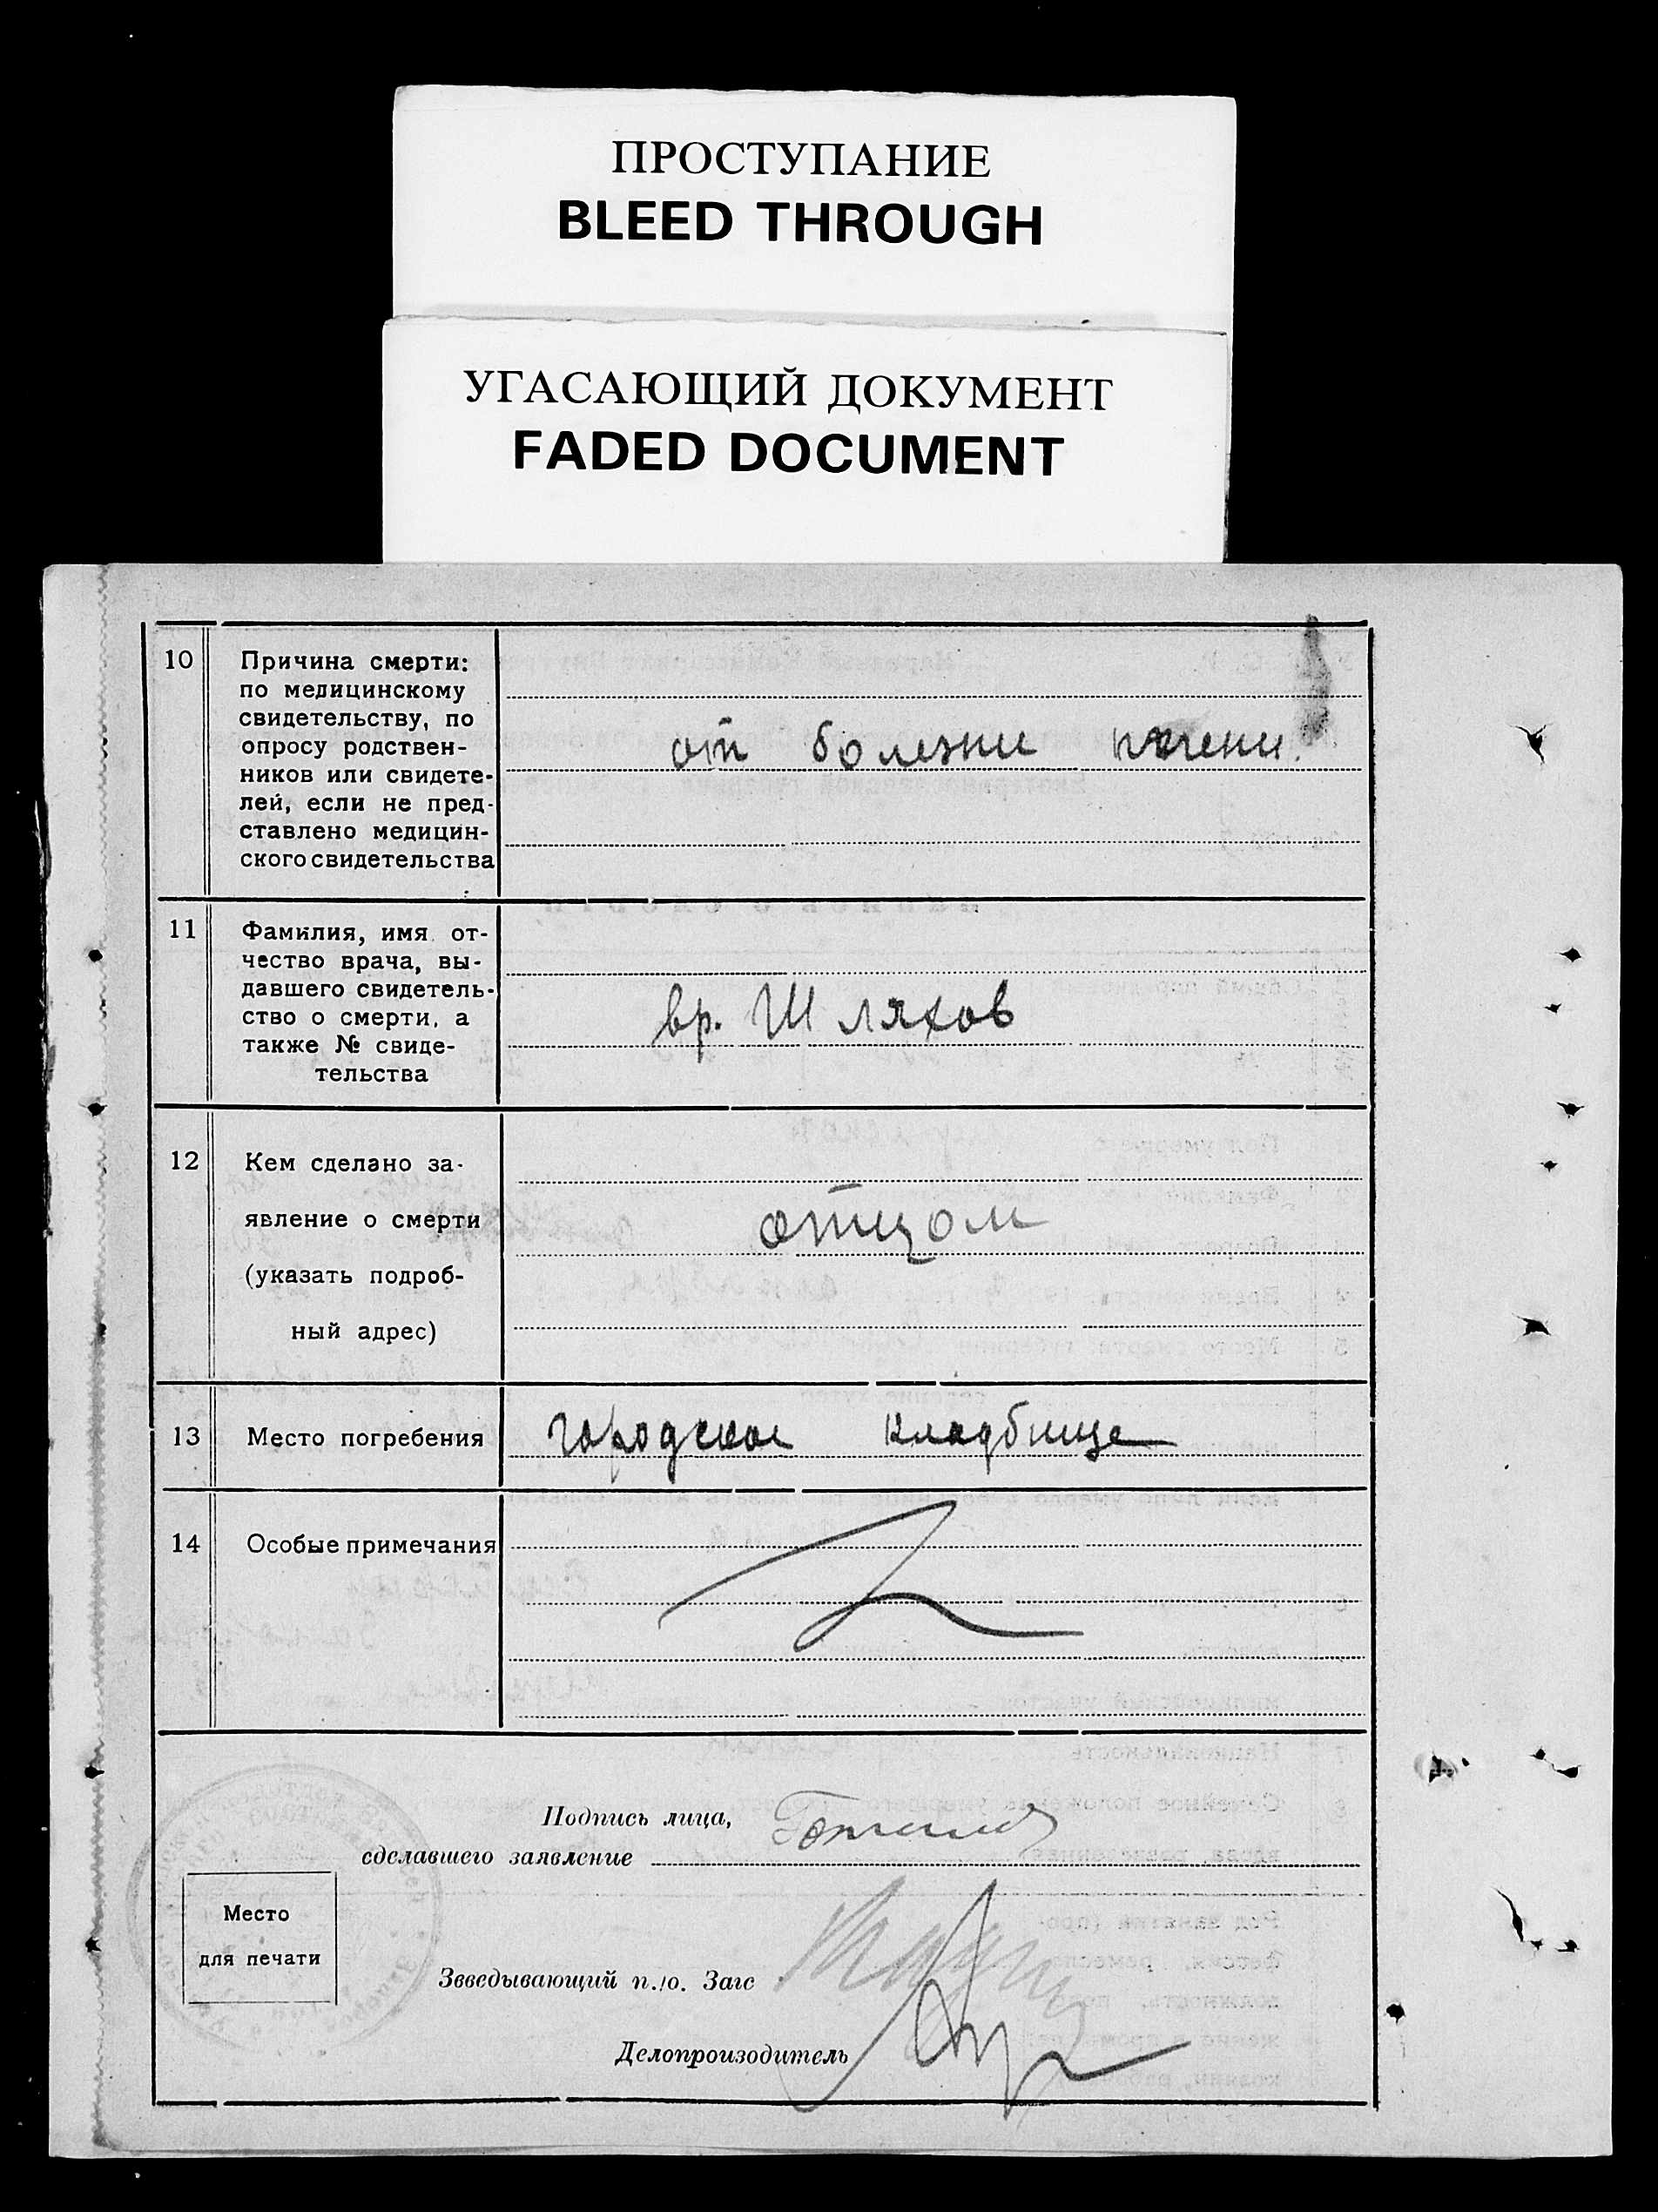 ПРОСТУПАНИЕ
BLEED THROUGH
УГАСАЮЩИЙ ДОКУМЕНТ
FADED DOCUMENT
10
Причина смерти:
по медицинскому
свидетельству, по
опросу родствен-
ников или свидете-
лей, если не пред-
ставлено медицин-
ского свидетельства
от болезни печени.
11
Фамилия, имя от-
чество врача, вы-
давшего свидетель-
ство о смерти, а
также № свиде-
тельства
вр. Шляхов
12
Кем сделано за-
явление о смерти
(указать подроб-
ный адрес)
отцом
13
Место погребения
городское кладбище
14
Особые примечания
Подпись лица,
сделавшего заявление
Место
для печати
Звведывающий п./о. Загс
Делопроизодитель